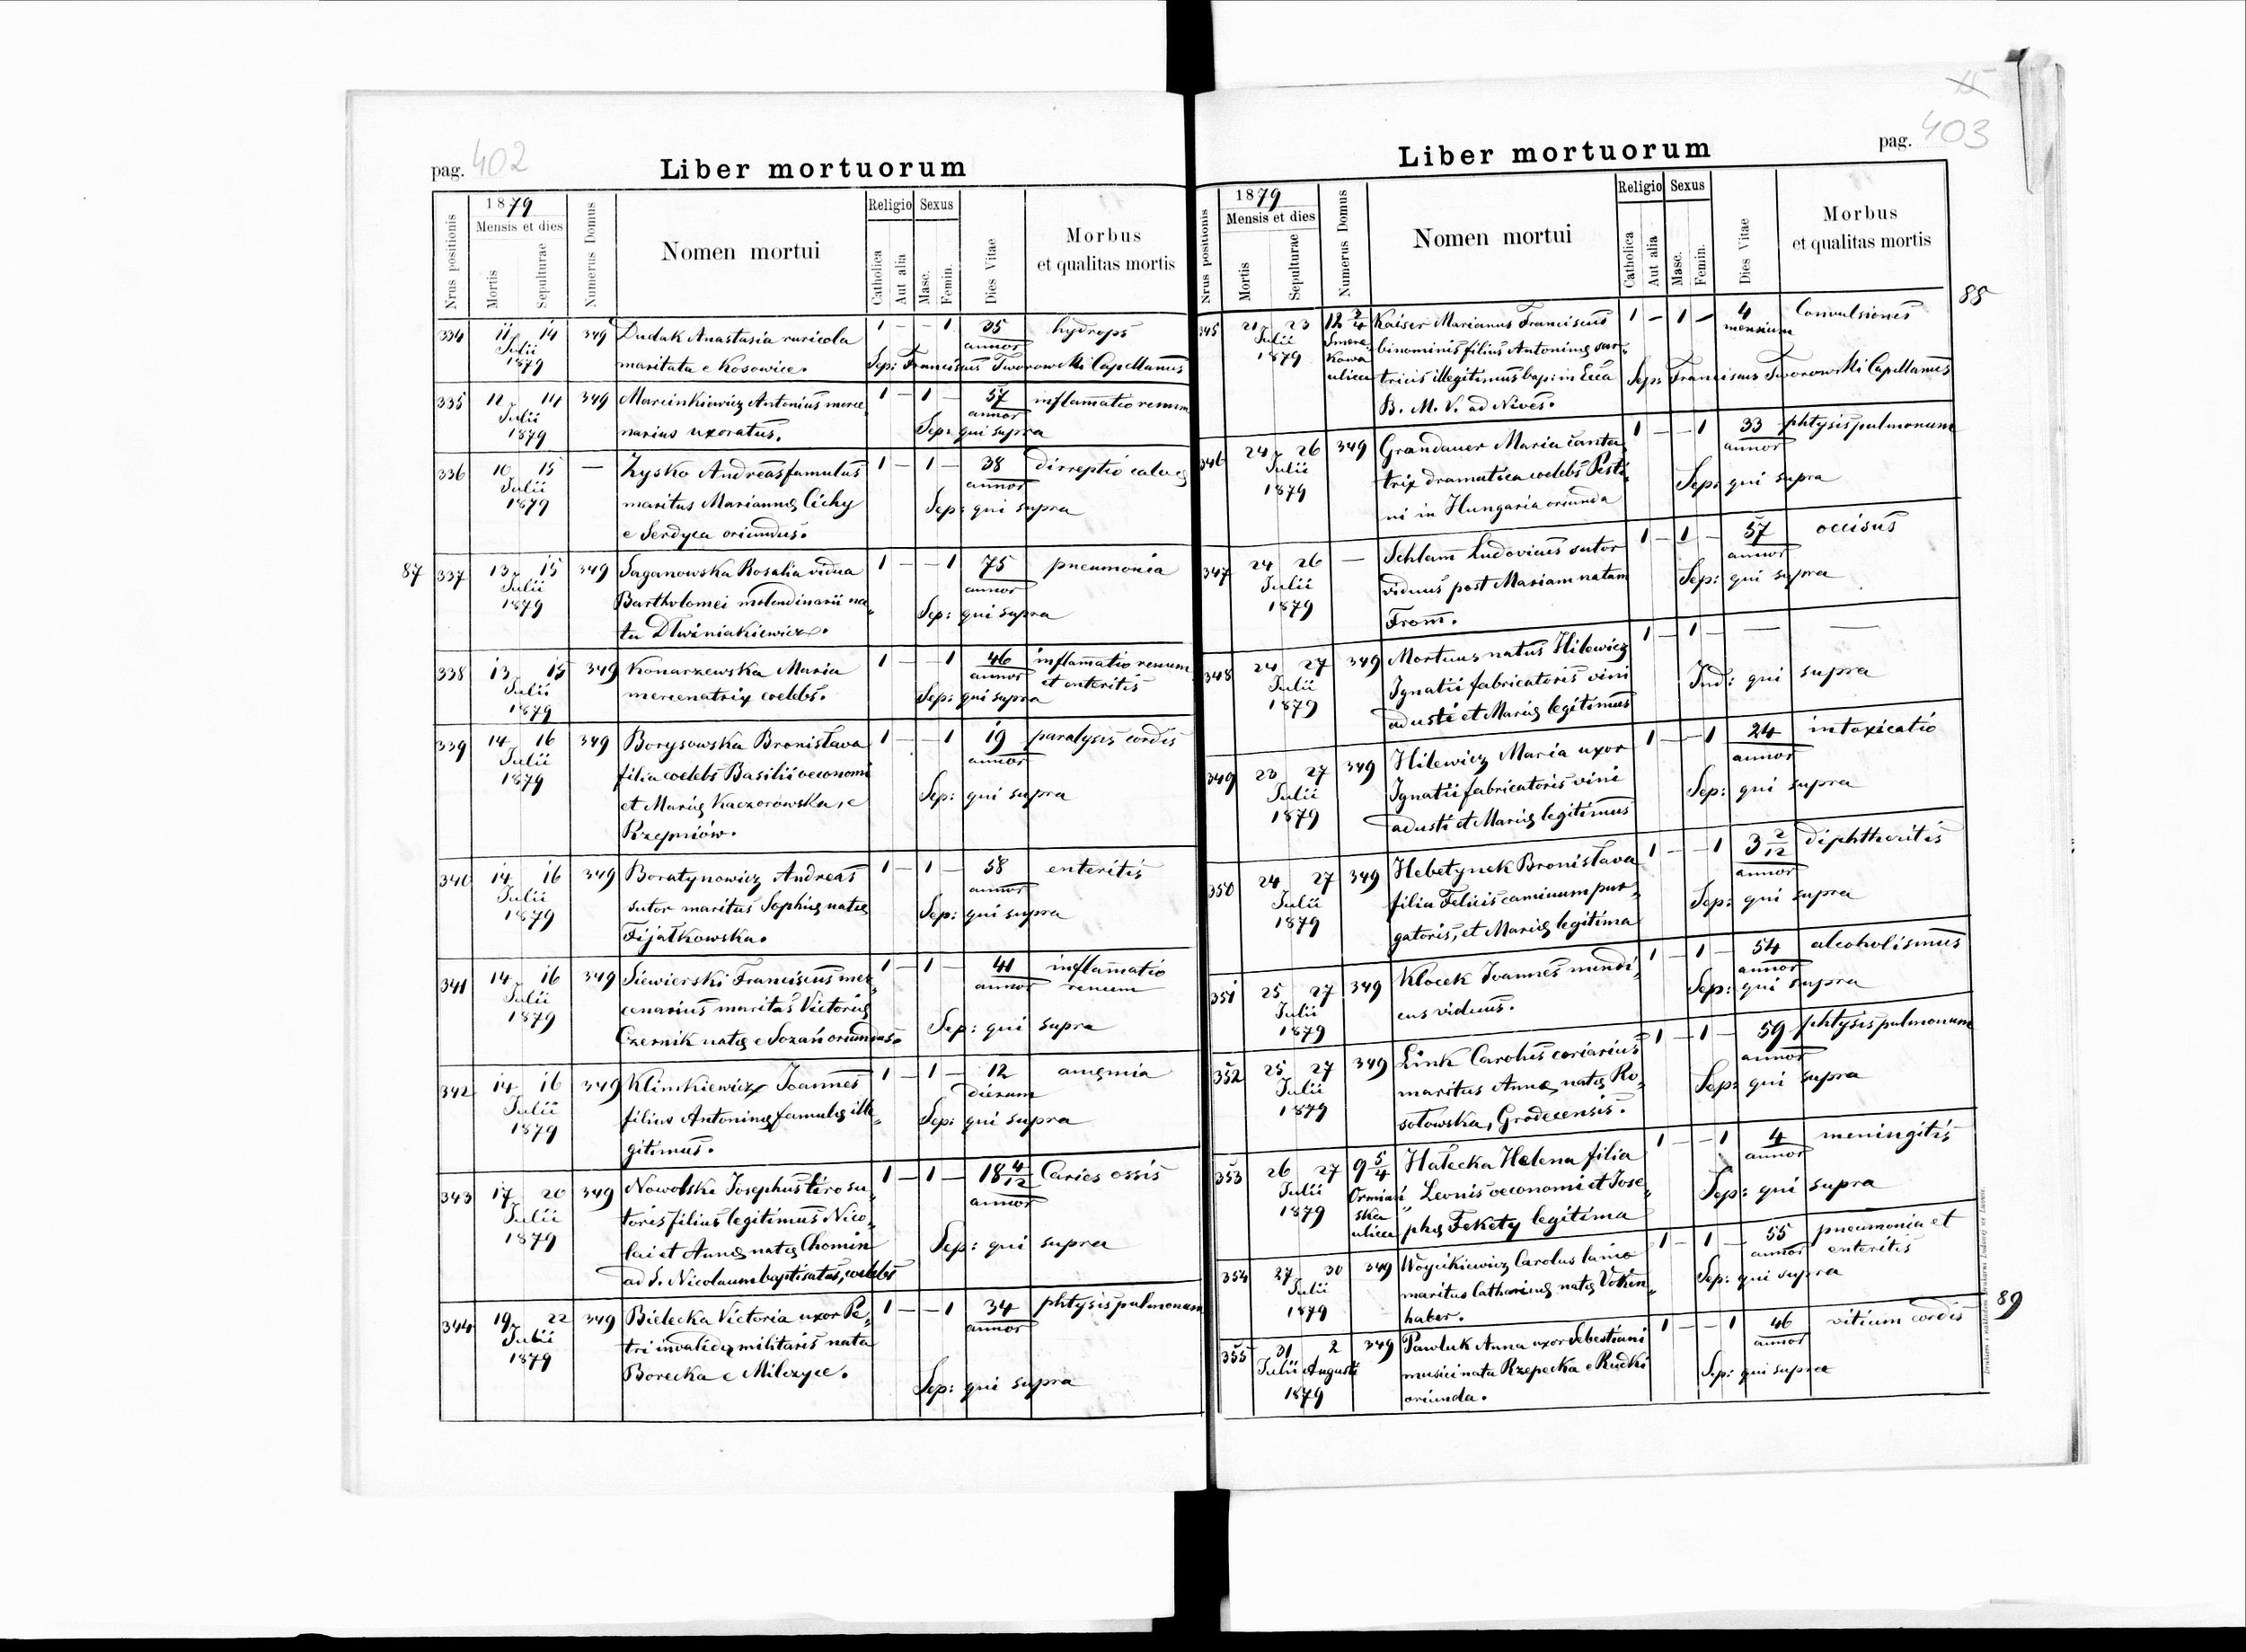 pag. 402
Liber mortuorum
Nrus positionis
1879
Mensis et dies
Mortis
Sepulturae
Numerus Domus
Nomen mortui
Religio
Catholica
Aut alia
Sexus
Masc.
Femin.
Dies Vitae
Morbus
et qualitas mortis
334 11 14 349 Dudak Anastasia ruricola 1 — — 1 35 hydrops
Julii annor
1879 maritata e Kosowice. Sep: Franciscus Tworowski Capellanus
335 12 14 349 Marcinkiewicz Antonius merce 1 — 1 — 57 inflamatio renum
Julii annor
1879 narius uxoratus. Sep: qui supra
336 10 15 — Zysko Andreas famulus 1 — 1 — 38 dirreptio
Julii maritus Mariannę Cichy annor
1879 Sep: qui supra
e Serdyca oriundus.
87 337 13 15 349 Saganowska Rosalia vidua 1 — — 1 75 pneumonia
Julii Bartholomei molendinarii na„ annor
1879 Sep: qui supra
ta Dłwiniakiewicz.
338 13 15 349 Konarzewska Maria 1 — — 1 46 inflamatio renum
Julii mercenatrix coelebs. annor et enteritis
1879 Sep: qui supra
339 14 16 349 Borysowska Bronisława 1 — — 1 19 paralysis cordis
Julii filia coelebs Basilii oeconomi annor
1879 et Marię Kaczorowska, e Sep: qui supra
Rzepniów.
340 14 16 349 Boratynowicz Andreas 1 — 1 — 58 enteritis
Julii sutor maritus Sophię natę annor
1879 Sep: qui supra
Fijałkowska.
341 14 16 349 Siewierski Franciscus mer„ 1 — 1 — 41 inflamatio
Julii cenarius maritus Victorię annor renum
1879 Czernik natę e Sozań oriundus. Sep: qui supra
342 14 16 349 Klimkiewicz Joannes 1 — 1 — 12 anęmia
Julii filius Antoninę famulę ille„ dierum
1879 Sep: qui supra
gitimus.
343 17 20 349 Nowolski Josephus tiro su„ 1 — 1 — 18 4/12 Caries ossis
Julii toris filius legitimus Nico„ annor
1879 lai et Annę natę Chomin Sep: qui supra
ad S. Nicolaum baptisatus, coelebs
344 19 22 349 Bielecka Victoria uxor Pe„ 1 — — 1 34 phtysis pulmonum
Julii tri invalidę militaris nata annor
1879 Borecka e Milczyce. Sep: qui supra
pag. 403
Liber mortuorum
Nrus positionis
1879
Mensis et dies
Mortis
Sepulturae
Numerus Domus
Nomen mortui
Religio
Catholica
Aut alia
Sexus
Masc.
Femin.
Dies Vitae
Morbus
et qualitas mortis
88
345 21 23 12 2/4 Kaiser Marianus Franciscus 1 — 1 — 4 Convulsiones
Julii Smere„ binominis filius Antoninę sar„ mensium
1879 kowa ulica tricis illegitimus bap: in Ecca Sep: Franciscus Tworowski Capellanus
B. M. V. ad Nives.
346 24 26 349 Grandauer Maria canta„ 1 — — 1 33 phtysis pulmonum
Julii trix dramatica coelebs Pesti„ annor
1879 ni in Hungaria oriunda Sep: qui supra
347 24 26 — Schlam Ludovicus sutor 1 — 1 — 57 occisus
Julii viduus post Mariam natam annor
1879 From. Sep: qui supra
348 24 27 349 Mortuus natus Hilewicz 1 — 1 — — —
Julii Ignatii fabricatoris vini
1879 adusti et Marię legitimus Ind: qui supra
349 23 27 349 Hilewicz Maria uxor 1 — — 1 24 intoxicatio
Julii Ignatii fabricatoris vini annor
1879 adusti et Marię legitimus Sep: qui supra
350 24 27 349 Hebetynek Bronisława 1 — — 1 3 2/12 diphtheritis
Julii filia Felicis caminum pur„ annor
1879 gatoris, et Marię legitima Sep: qui supra
351 25 27 349 Klocek Joannes mendi„ 1 — 1 — 54 alcoholismus
Julii cus viduus. annor
1879 Sep: qui supra
352 25 27 349 Link Carolus coriarius 1 — 1 — 59 phtysis pulmonum
Julii maritus Annę natę Ro„ annor
1879 sołowska, Grodecensis. Sep: qui supra
353 26 27 9 5/4 Hałecka Helena filia 1 — — 1 4 meningitis
Julii Ormiań Leonis oeconomi et Jose„ annor
1879 ska ulica phę Fekety legitima Sep: qui supra
354 27 30 349 Woycikiewicz Carolus lanio 1 — 1 — 55 pneumonia et
Julii maritus Catharinę natę annor enteritis
1879 haber. Sep: qui supra
89
355 31 2 349 Pawluk Anna uxor Sebestiani 1 — — 1 46 vitium cordis
Julii Augusti musici nata Rzepecka e Rudki annor
1879 oriunda. Sep: qui supra